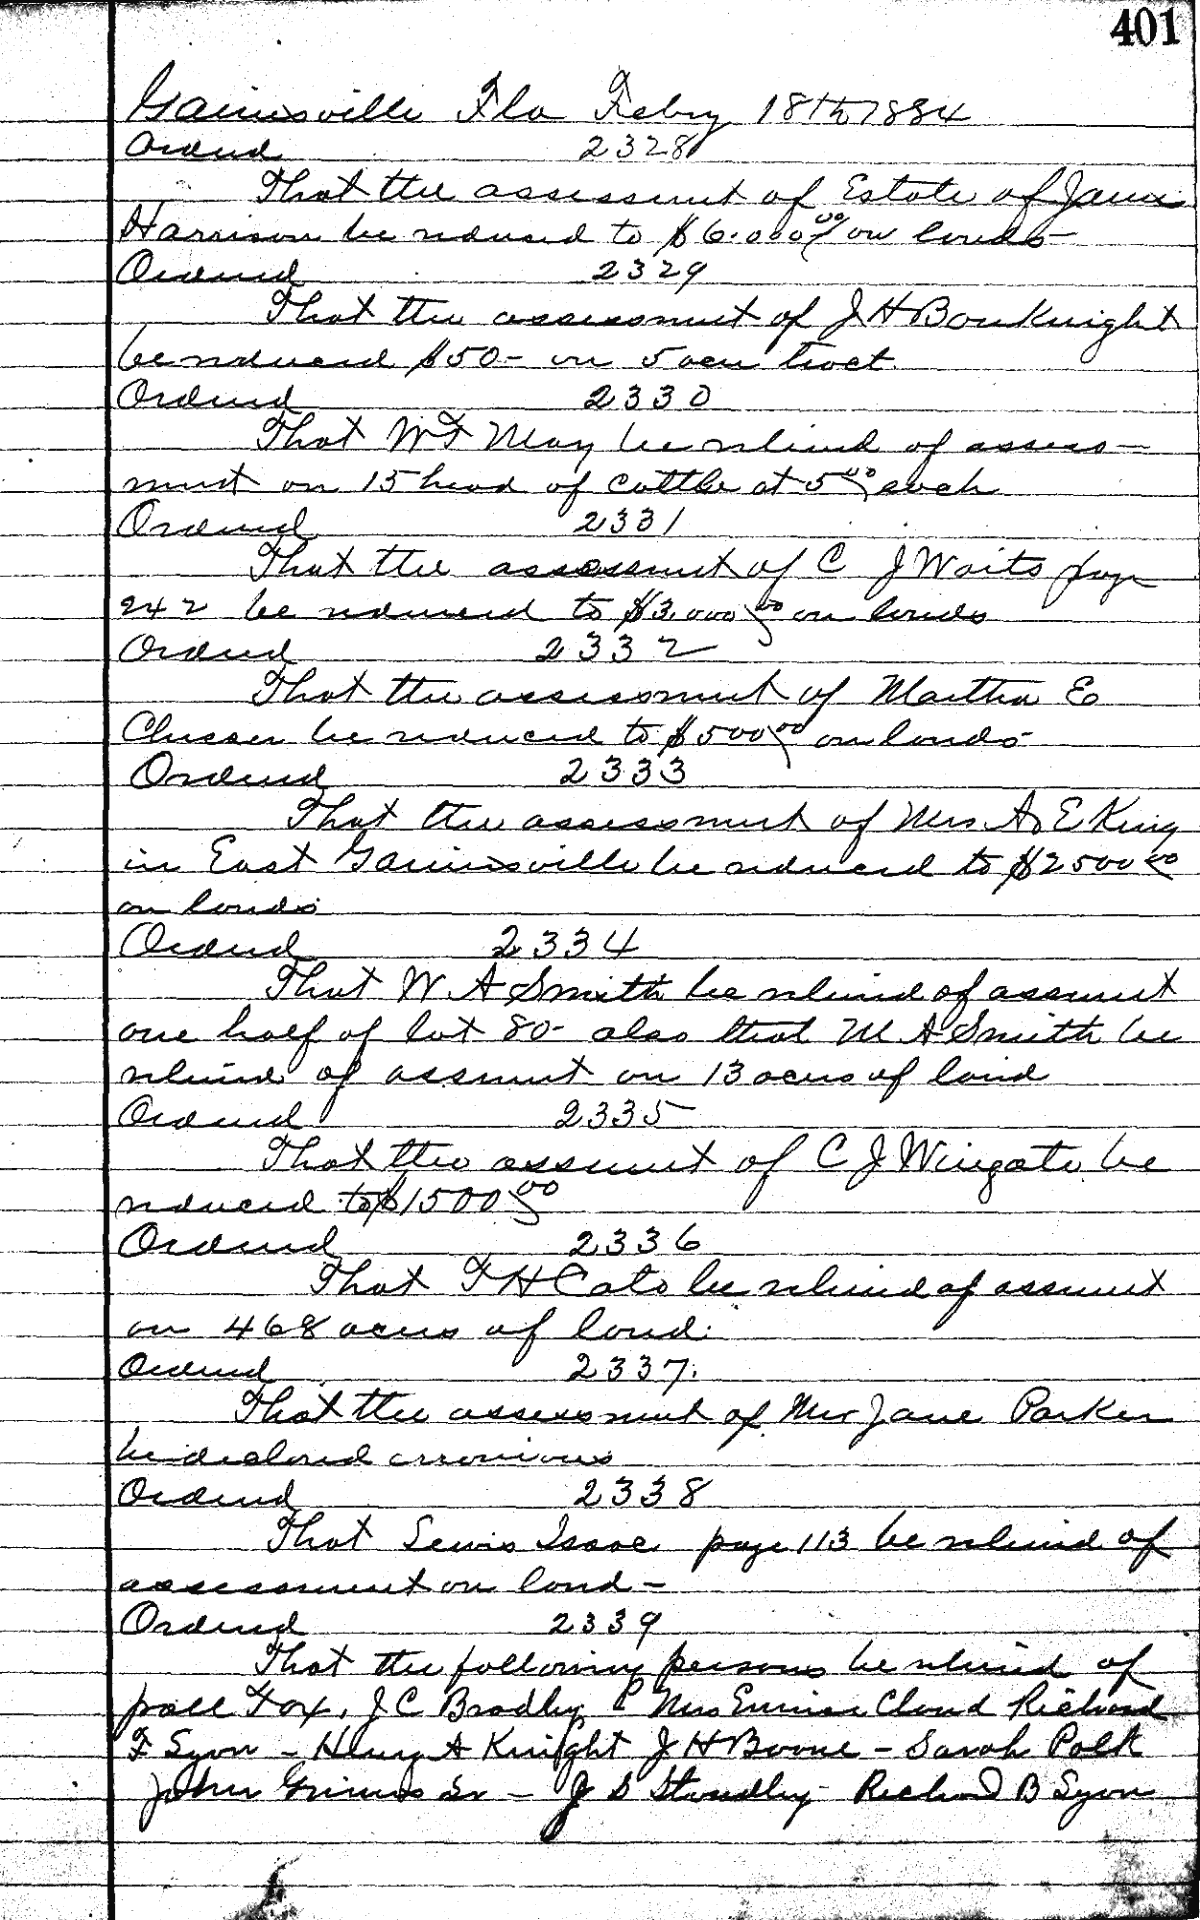 401
Gainesville Fla Febry 18th 1884
Ordered 2328
That the assessment of Estate of James
Harrison be reduced to $6.000 00/ on lands-
Ordered 2329
That the assessment of J H Bouknight
be reduced $50- on 5 acre tract.
Ordered 2330
That W F May be relieved of assess-
ment on 15 head of cattle at 5 00/ each
Ordered 2331
That the assessment of C J Waits page
242 be reduced to $3.000 00/ on lands
Ordered 2332
That the assessment of Martha E
be reduced to $500 00/ on lands-
Ordered 2333
That the assessment of Mrs A E King
in East Gainesville be reduced to $2500 00
on lands
Ordered 2334
That W A Smith be relieved of assessment
one half of lot 80- also that M A Smith be
relieved of assessment on 13 acres of land
Ordered 2335
That the assessment of C J Wingate be
reduced to $1500 00
Ordered 2336
That F H Cato be relieved of assessment
on 468 acres of land.
Ordered 2337.
That the assessment of Mrs Jane Parker
be declared erronious
Ordered 2338
That Lewis Isaac page 113 be relieved of
assessment on land-
Ordered 2339
That the following persons be relieved of
poll Tax. J C Bradley Mrs Cloud Richard
F Syon - Henry A Knight J H Boone - Sarah Polk
John Grimes Sr - J S Standley- Richard B Syon